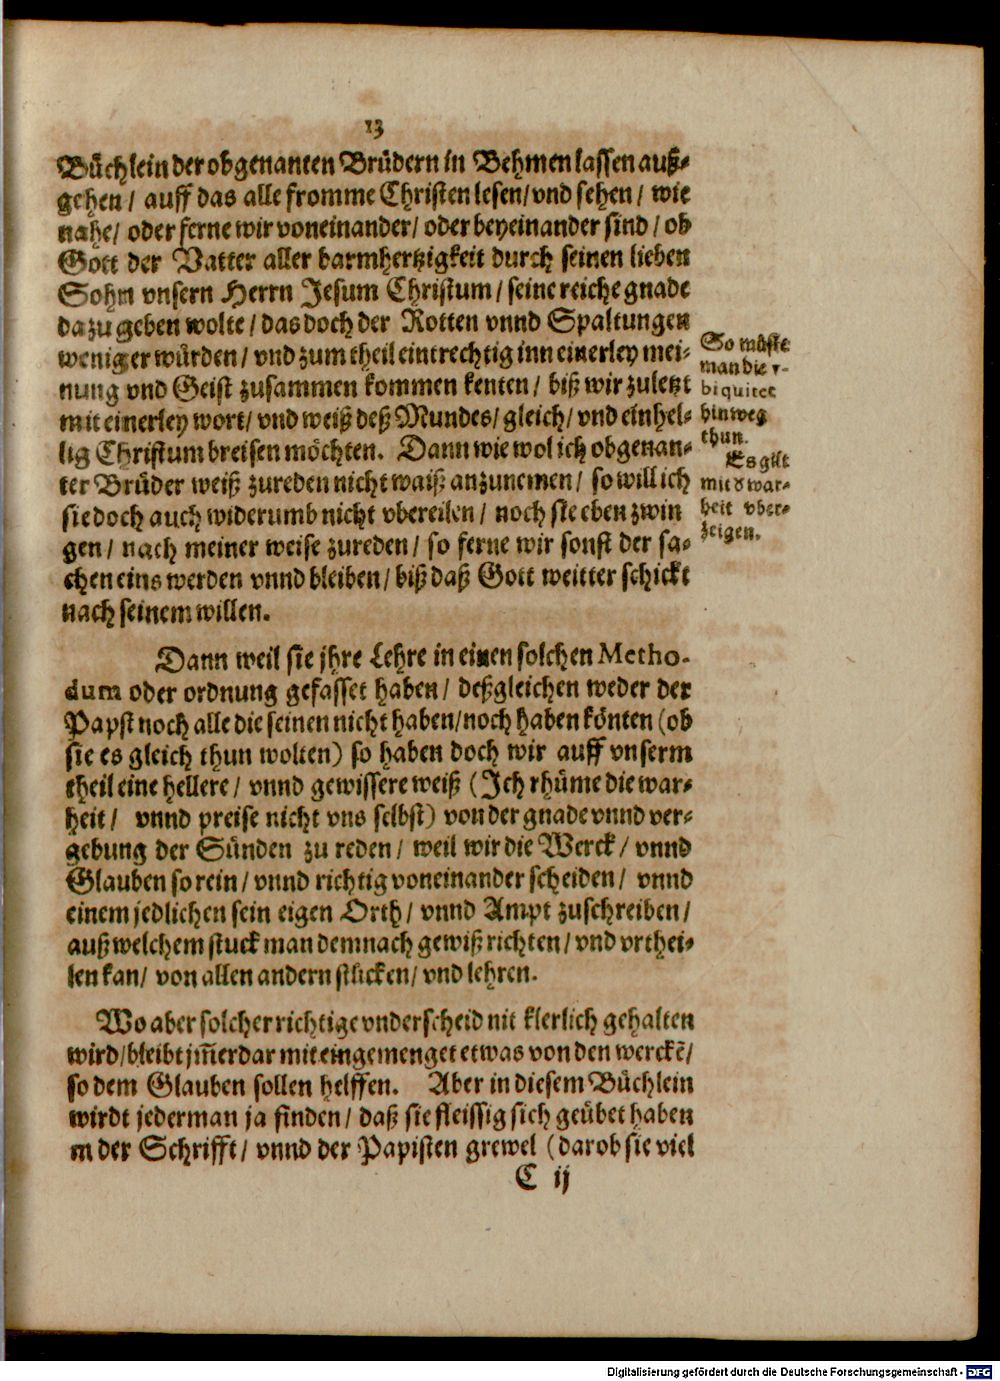 13
Büchlein der obgenanten Brüdern in Behmen lassen auß-
gehen / auff das alle fromme Christen lesen / vnd sehen / wie
nahe / oder ferne wir voneinander / oder beyeinander sind / ob
Gott der Vatter aller barmhertzigkeit durch seinen lieben
Sohn vnsern Herrn Jesum Christum / seine reiche gnade
dazu geben wolte / das doch der Rotten vnnd Spaltungen
weniger würden / vnd zum theil eintrechtig inn einerley mei-
nung vnd Geist zusammen kommen kenten / biß wir zuletzt
mit einerley wort / vnd weiß deß Mundes / gleich / vnd einhel-
lig Christum breisen möchten. Dann wie wol ich obgenan-
ter Brüder weiß zureden nicht waiß anzunemen / so will ich
sie doch auch widerumb nicht vbereilen / noch sie eben zwin
gen / nach meiner weise zureden / so ferne wir sonst der sa-
chen eins werden vnnd bleiben / biß daß Gott weitter schickt
nach seinem willen.
So müste
man die v-
biquitet
hinweg
thun.
Es gilt
mit d war-
heit vber-
zeigen.
Dann weil sie jhre Lehre in einen solchen Metho-
dum oder ordnung gefasset haben / deßgleichen weder der
Papst noch alle die seinen nicht haben / noch haben könten (ob
sie es gleich thun wolten) so haben doch wir auff vnserm
theil eine hellere / vnnd gewissere weiß (Ich rhüme die war-
heit / vnnd preise nicht vns selbst) von der gnade vnnd ver-
gebung der Sünden zu reden / weil wir die Werck / vnnd
Glauben so rein / vnnd richtig voneinander scheiden / vnnd
einem jedlichen sein eigen Orth / vnnd Ampt zuschreiben /
auß welchem stuck man demnach gewiß richten / vnd vrthei-
len kan / von allen andern stücken / vnd lehren.
Wo aber solcher richtige vnderscheid nit klerlich gehalten
wird / bleibt jm̃erdar mit eingemenget etwas von den werckẽ /
so dem Glauben sollen helffen. Aber in diesem Büchlein
wirdt jederman ja finden / daß sie fleissig sich geübet haben
in der Schrifft / vnnd der Papisten grewel (darob sie viel
C ij
Digitalisierung gefördert durch die Deutsche Forschungsgemeinschaft - DFG